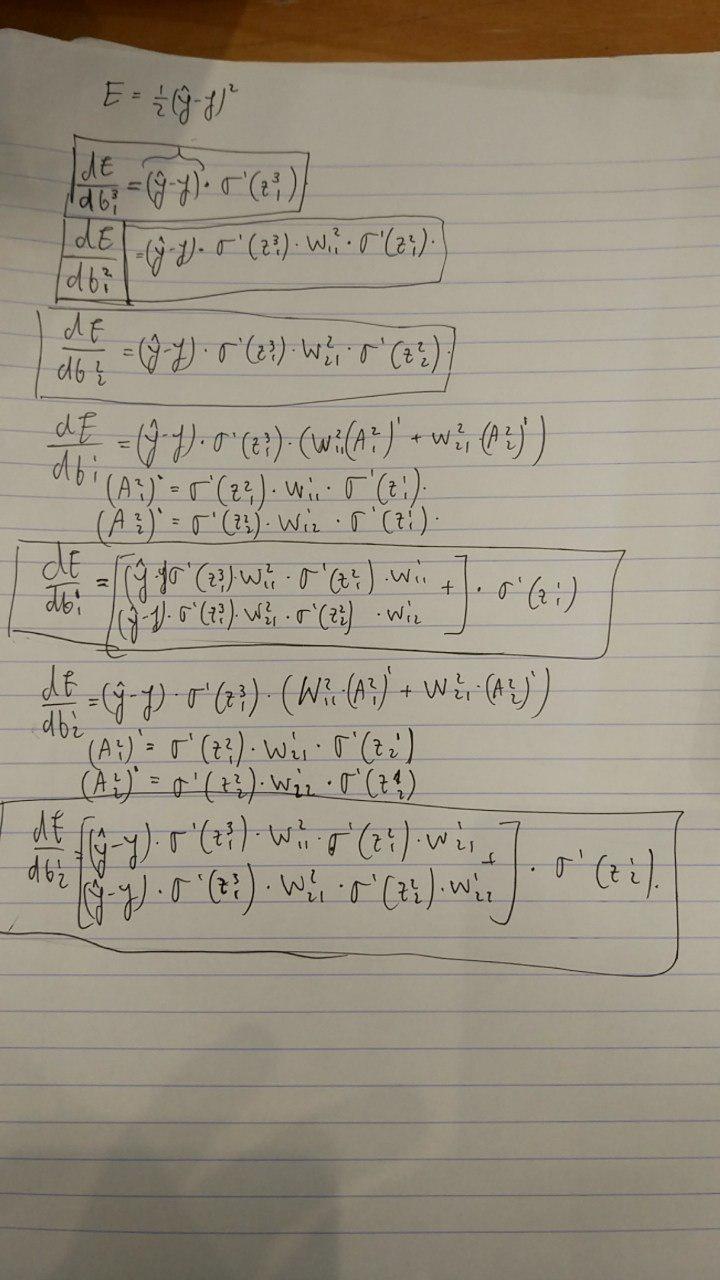 E = ½(ŷ-y)²
dE/db₁³ = (ŷ-y)· σ'(z₁³)
dE/db₁² = (ŷ-y)· σ'(z₁³)· w₁₁² · σ'(z₁²)·
dE/db₂² = (ŷ-y)· σ'(z₁³)· w₂₁² · σ'(z₂²)·
dE/db₁¹ = (ŷ-y)· σ'(z₁³)· (w₁₁²(A₁²)' + w₂₁²·(A₂²)')
(A₁²)' = σ'(z₁²)· w₁₁¹ · σ'(z₁¹)·
(A₂²)' = σ'(z₂²)· w₁₂¹ · σ'(z₁¹)·
dE/db₁¹ = [(ŷ-y)σ'(z₁³)·w₁₁² · σ'(z₁²) · w₁₁¹ +
(ŷ-y)· σ'(z₁³)· w₂₁² · σ'(z₂²) · w₁₂¹] · σ'(z₁¹)
dE/db₂¹ = (ŷ-y) · σ'(z₁³)· (W₁₁²·(A₁²)' + W₂₁²·(A₂²)')
(A₁²)' = σ'(z₁²)· w₂₁¹ · σ'(z₂¹)
(A₂²)' = σ'(z₂²)· w₂₂¹ · σ'(z₂¹)
dE/db₂¹ = [(ŷ-y)· σ'(z₁³)· w₁₁² · σ'(z₁²)· w₂₁¹ +
(ŷ-y)· σ'(z₁³)· w₂₁² · σ'(z₂²)· w₂₂¹] · σ'(z₂¹).